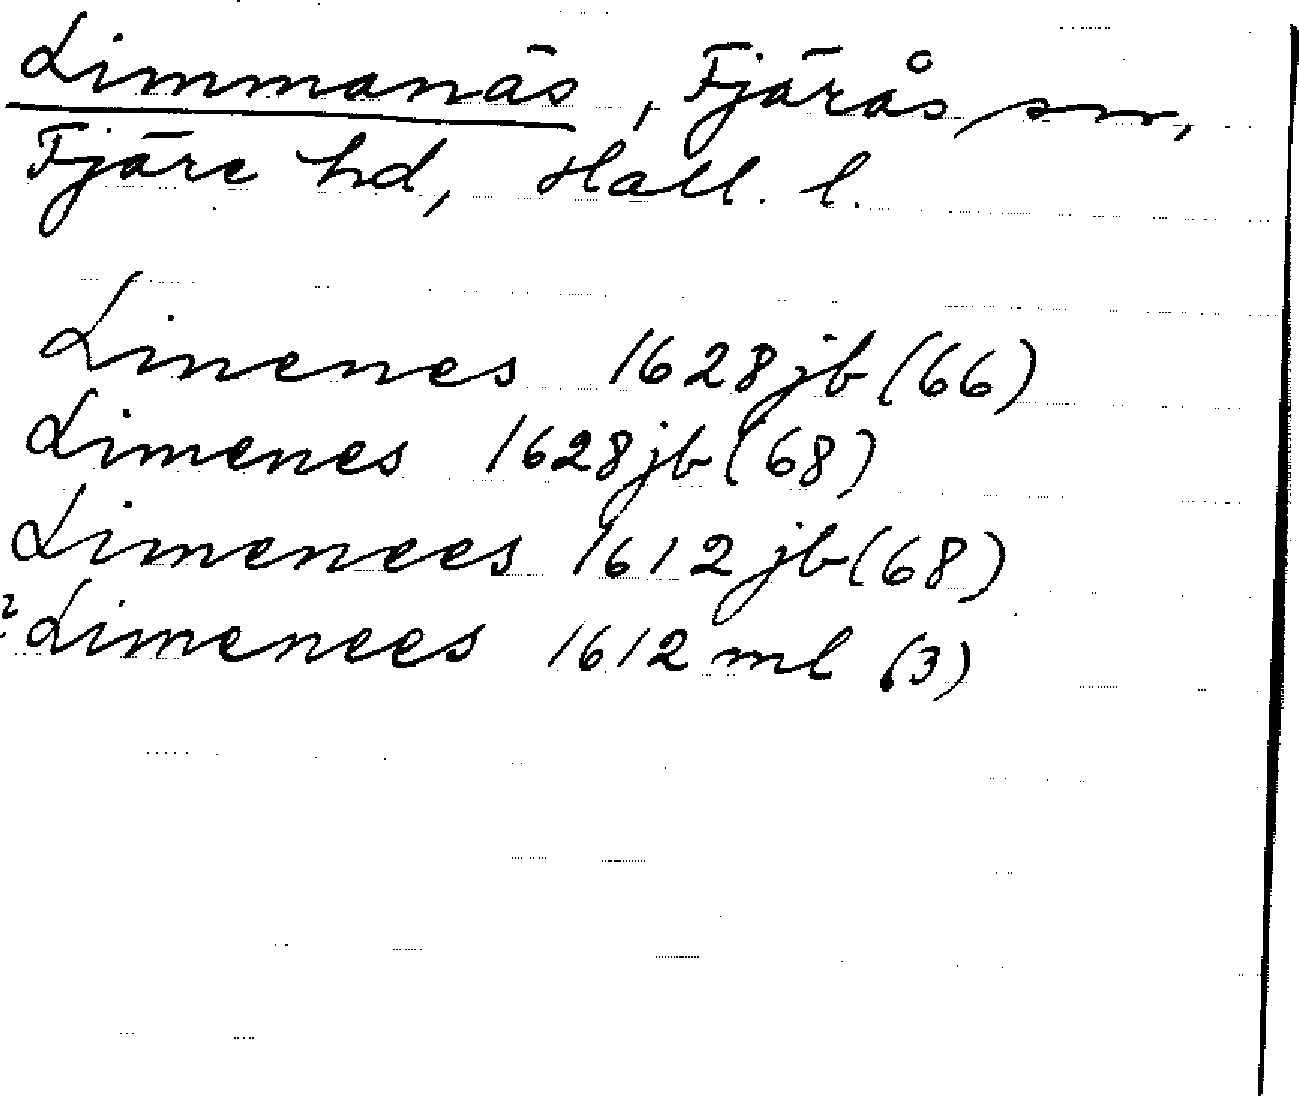 Limmanäs, Fjärås sn,
Fjäre hd, Hall. l.
Linenes 1628 jb (66)
Limenes 1628 jb (68)
Limenees 1612 jb (68)
? Limenees 1612 ml (3)